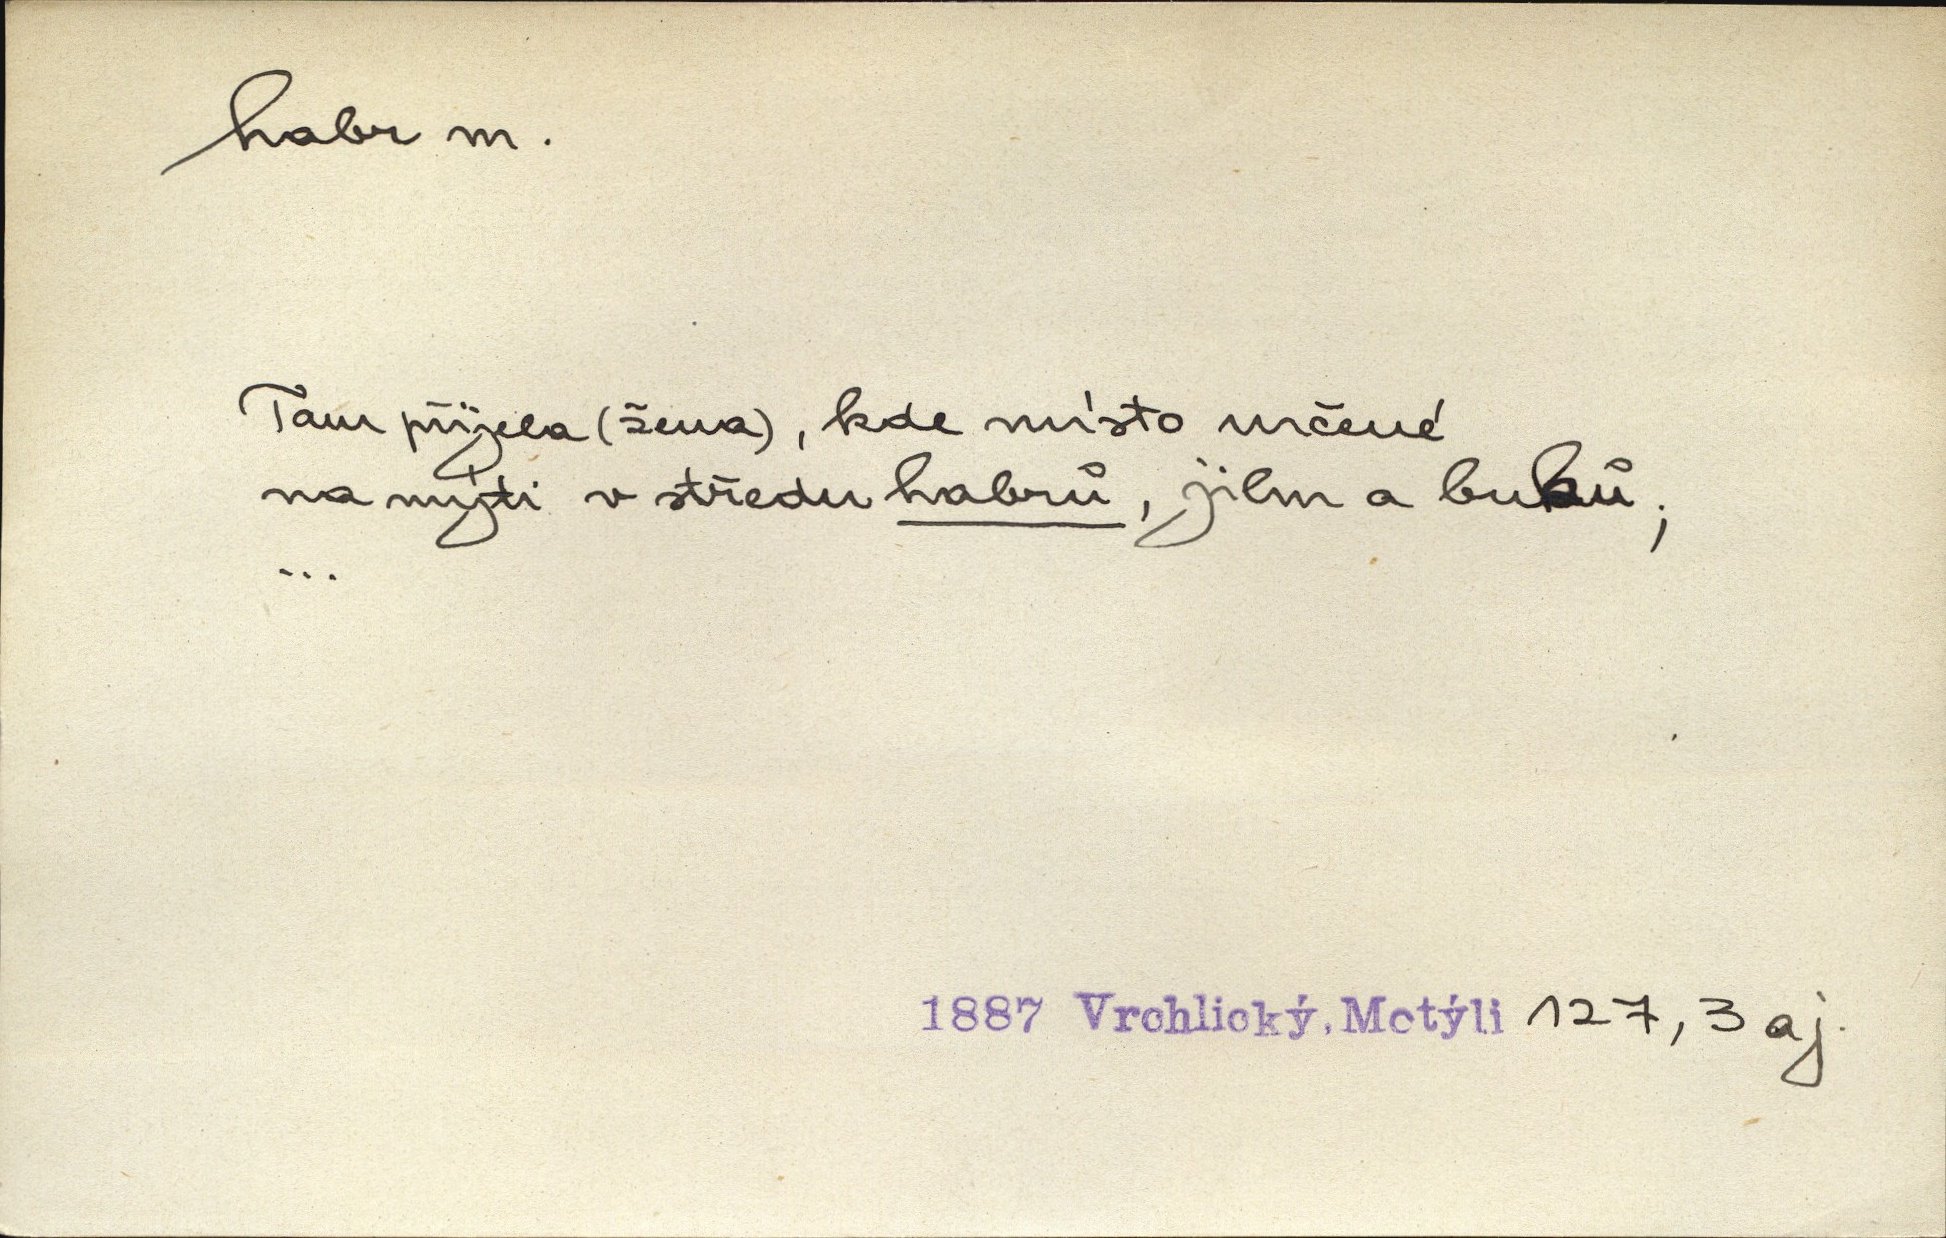 habr m.
Tam přijela (žena), kde místo určené
na mýti v středu habrů, jilm a buků;
...
1887 Vrchlický, Motýli 127, 3 aj.